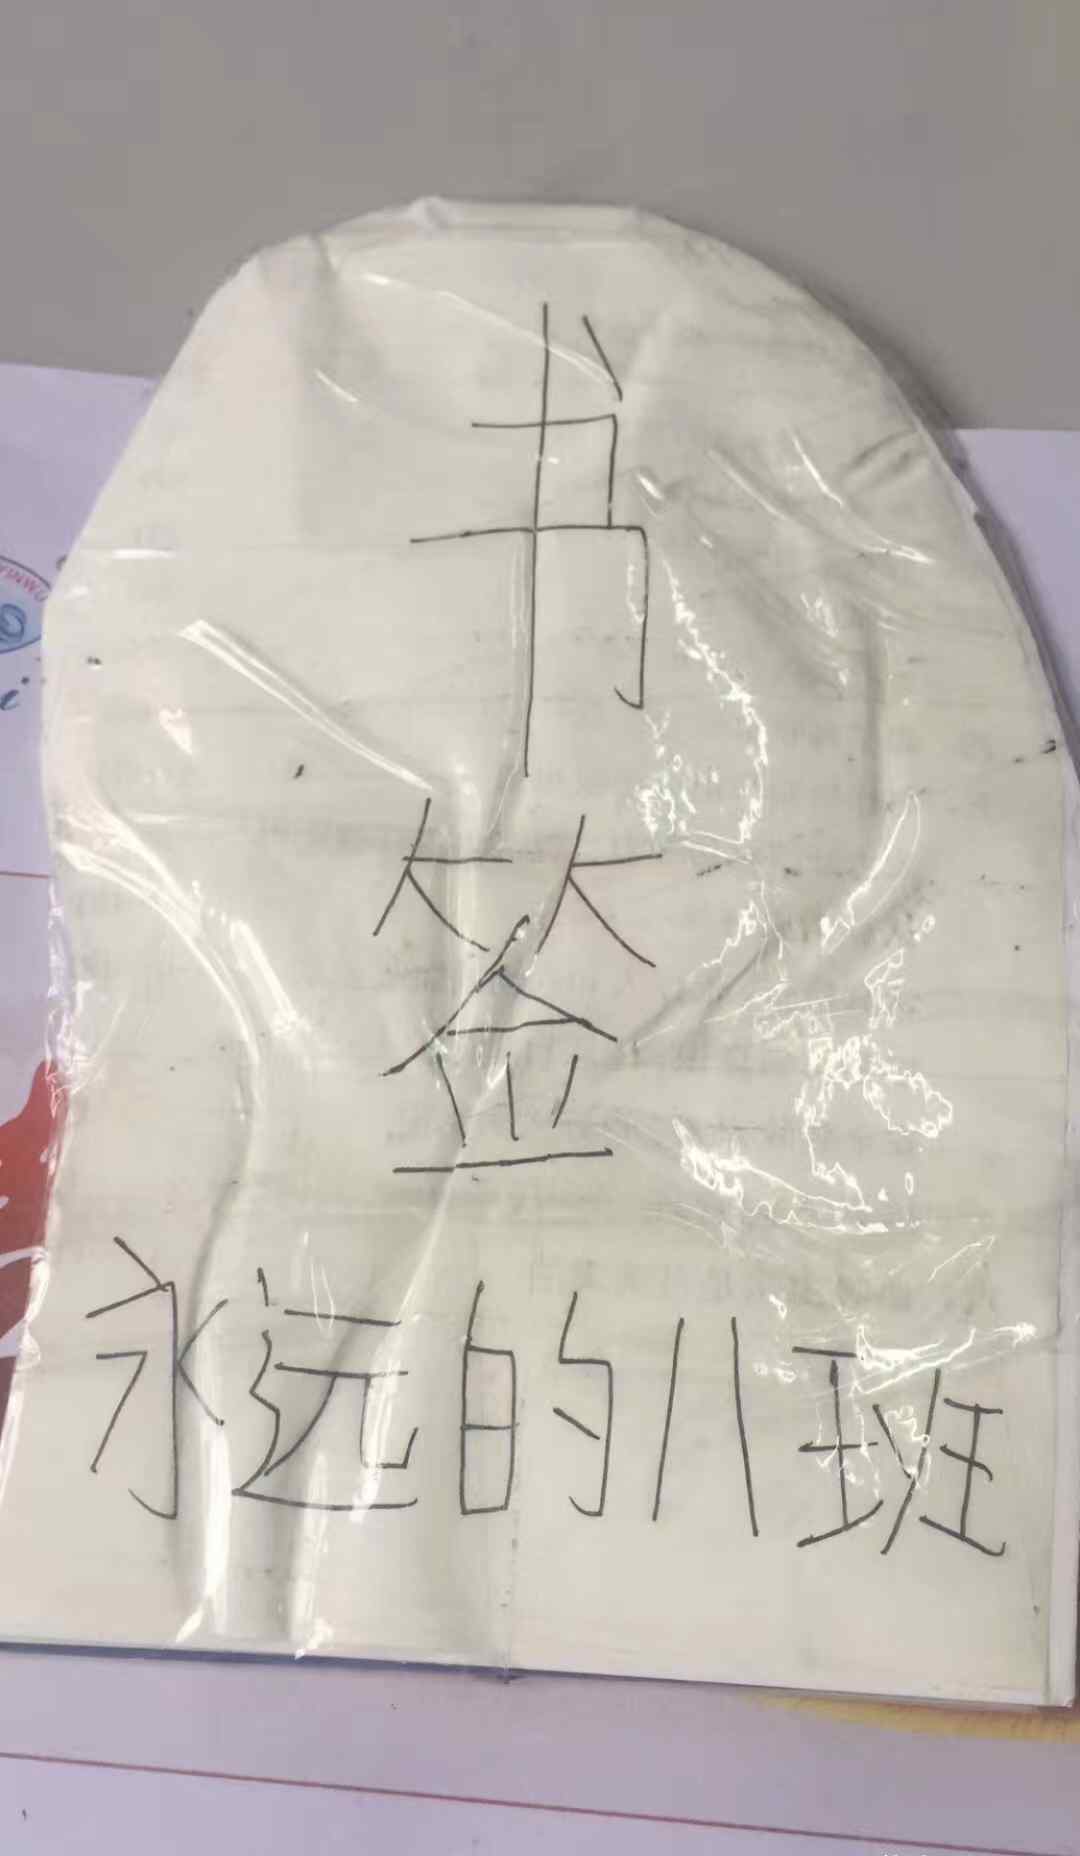 书
签
永远的八班